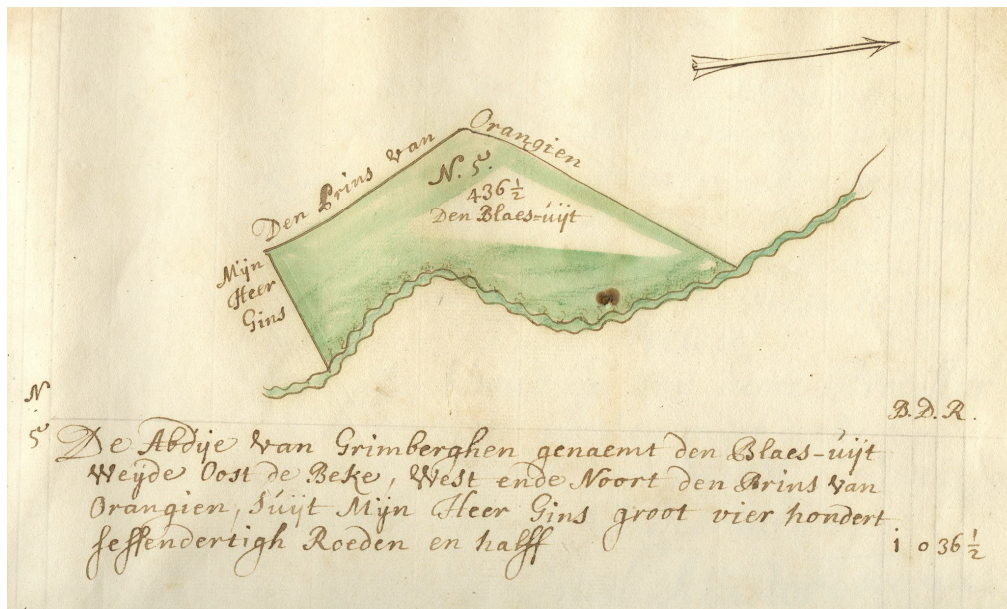 Den Prins van Orangien
N. 5.
436 1/2
Den Blaes-uijt
Mijn
Heer
Gins
N.
5
B. D. R.
De Abdije van Grimberghen genaemt den Blaes-uijt
Weijde Oost de Beke, West ende Noort den Prins van
Orangien, Suijt Mijn Heer Gins groot vier hondert
sessendertigh Roeden en halff
1 0 36 1/2